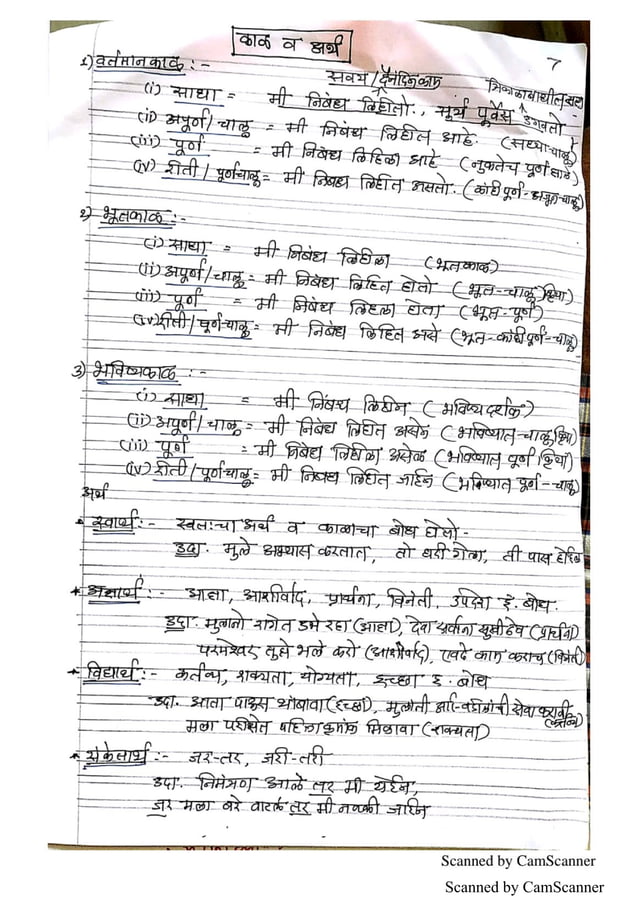 काळ व अर्थ
7
1) वर्तमानकाळ :-
सवय / दैनंदिन काम
त्रिकालाबाधीत सत्य
(i) साधा = मी निबंध लिहीतो., सूर्य पूर्वेस उगवतो
(ii) अपूर्ण / चालू = मी निबंध लिहीत आहे. (सध्या चालू)
(iii) पूर्ण = मी निबंध लिहिला आहे (नुकतेच पूर्ण झाले)
(iv) रीती / पूर्णचालू = मी निबंध लिहीत असतो. (काही पूर्ण - अजून चालू)
2) भूतकाळ :-
(i) साधा = मी निबंध लिहीला (भूतकाळ)
(ii) अपूर्ण / चालू = मी निबंध लिहित होतो (भूत - चालू क्रिया)
(iii) पूर्ण = मी निबंध लिहला होता (भूत - पूर्ण)
(iv) रीती / पूर्णचालू = मी निबंध लिहित असे (भूत - काही पूर्ण - चालू)
3) भविष्यकाळ :-
(i) साधा = मी निबंध लिहीन (भविष्य दर्शक)
(ii) अपूर्ण / चालू = मी निबंध लिहीत असेन (भविष्यात - चालू क्रिया)
(iii) पूर्ण = मी निबंध लिहीला असेल (भविष्यात पूर्ण क्रिया)
(iv) रीती / पूर्णचालू = मी निबंध लिहीत जाईन (भविष्यात पूर्ण - चालू)
अर्थ
* स्वार्थ :- स्वतःचा अर्थ व काळाचा बोध होतो -
उदा. मुले अभ्यास करतात, तो घरी गेला, ती पास होईल
* अज्ञार्थ :- आज्ञा, आशीर्वाद, प्रार्थना, विनंती, उपदेश इ. बोध.
उदा. मुलांनो रांगेत उभे रहा (आज्ञा), देवा सर्वांना सुखी ठेव (प्रार्थना)
परमेश्वर तुझे भले करो (आशीर्वाद), एवढे काम कराच (विनंती)
* विद्यार्थ :- कर्तव्य, शक्यता, योग्यता, इच्छा इ. बोध
उदा. आता पाऊस थांबावा (इच्छा), मुलांनी आई-वडीलांची सेवा करावी (कर्तव्य)
मला परीक्षेत पहिला क्रमांक मिळावा (शक्यता)
* संकेतार्थ :- जर-तर, जरी-तरी
उदा. निमंत्रण आले तर मी येईन,
जर मला बरे वाटले तर मी नक्की जाईन
Scanned by CamScanner
Scanned by CamScanner